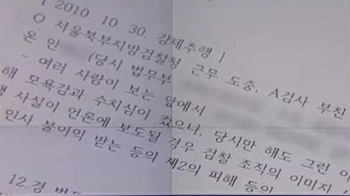 [ 2010. 10. 30. 강제추행 ]
O 서울북부지방검찰청 근무 도중, A검사 부친
온 인 (당시 법무부
- 여러 사람이 보는 앞에서
해 모욕감과 수치심이 컸으나, 당시만 해도 그런 이
행 사실이 언론에 보도될 경우 검찰 조직의 이미지
인사 불이익 받는 등의 제2의 피해 등의
12.경